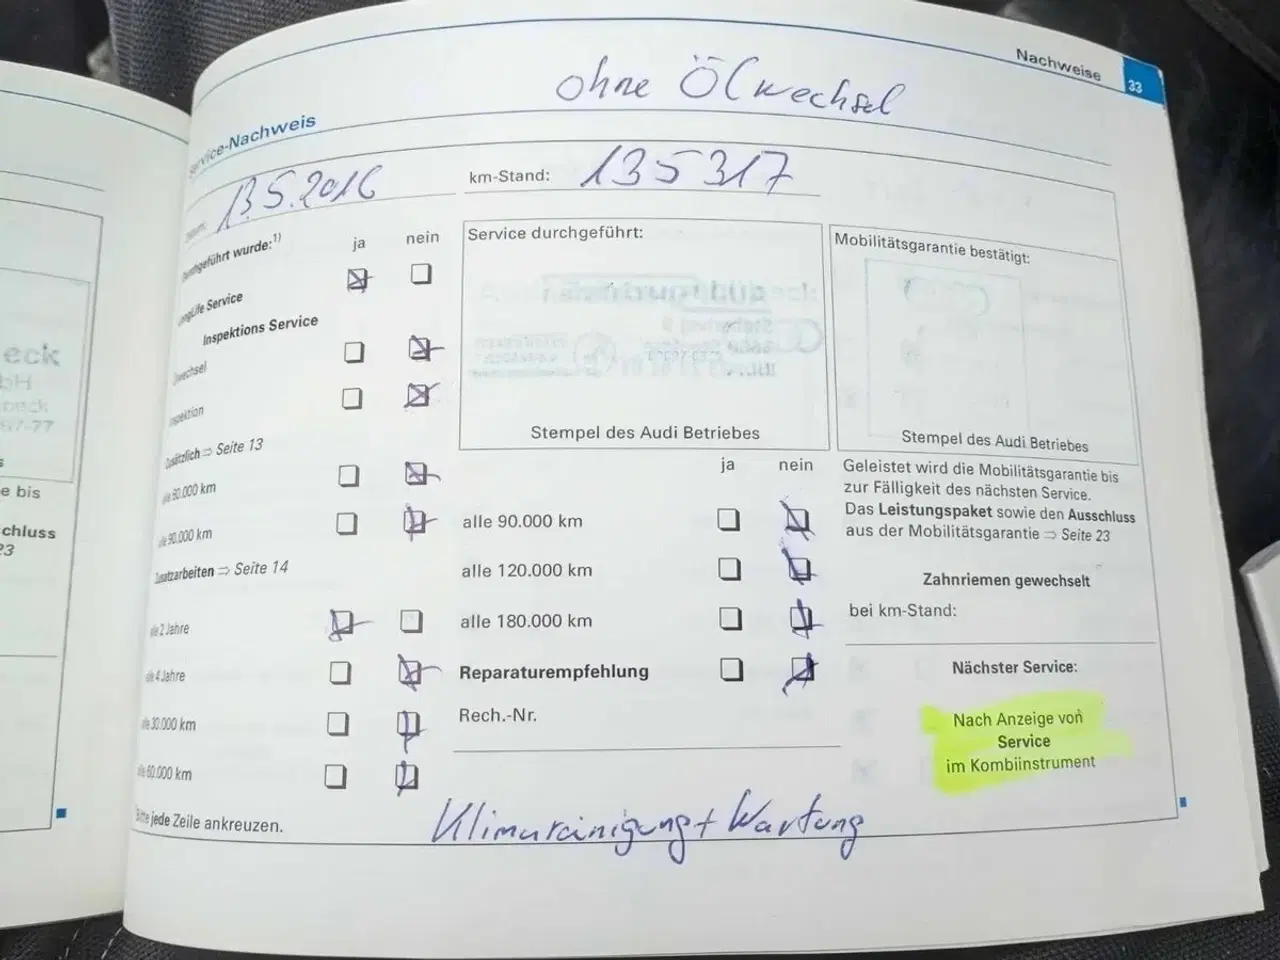 Nachweise 33
ohne Ölwechsel
Service-Nachweis
13.5.2016
km-Stand: 135317
Durchgeführt wurde:1)
ja nein
LongLife Service
Inspektions Service
Ölwechsel
Inspektion
Zusätzlich ⇒ Seite 13
alle 60.000 km
alle 90.000 km
Zusatzarbeiten ⇒ Seite 14
alle 2 Jahre
alle 4 Jahre
alle 30.000 km
alle 60.000 km
Bitte jede Zeile ankreuzen.
Service durchgeführt:
Stempel des Audi Betriebes
ja nein
alle 90.000 km
alle 120.000 km
alle 180.000 km
Reparaturempfehlung
Rech.-Nr.
Klimareinigung + Wartung
Mobilitätsgarantie bestätigt:
Stempel des Audi Betriebes
Geleistet wird die Mobilitätsgarantie bis
zur Fälligkeit des nächsten Service.
Das Leistungspaket sowie den Ausschluss
aus der Mobilitätsgarantie ⇒ Seite 23
Zahnriemen gewechselt
bei km-Stand:
Nächster Service:
Nach Anzeige von
Service
im Kombiinstrument
eck
bH
beck
67-77
e bis
chluss
23